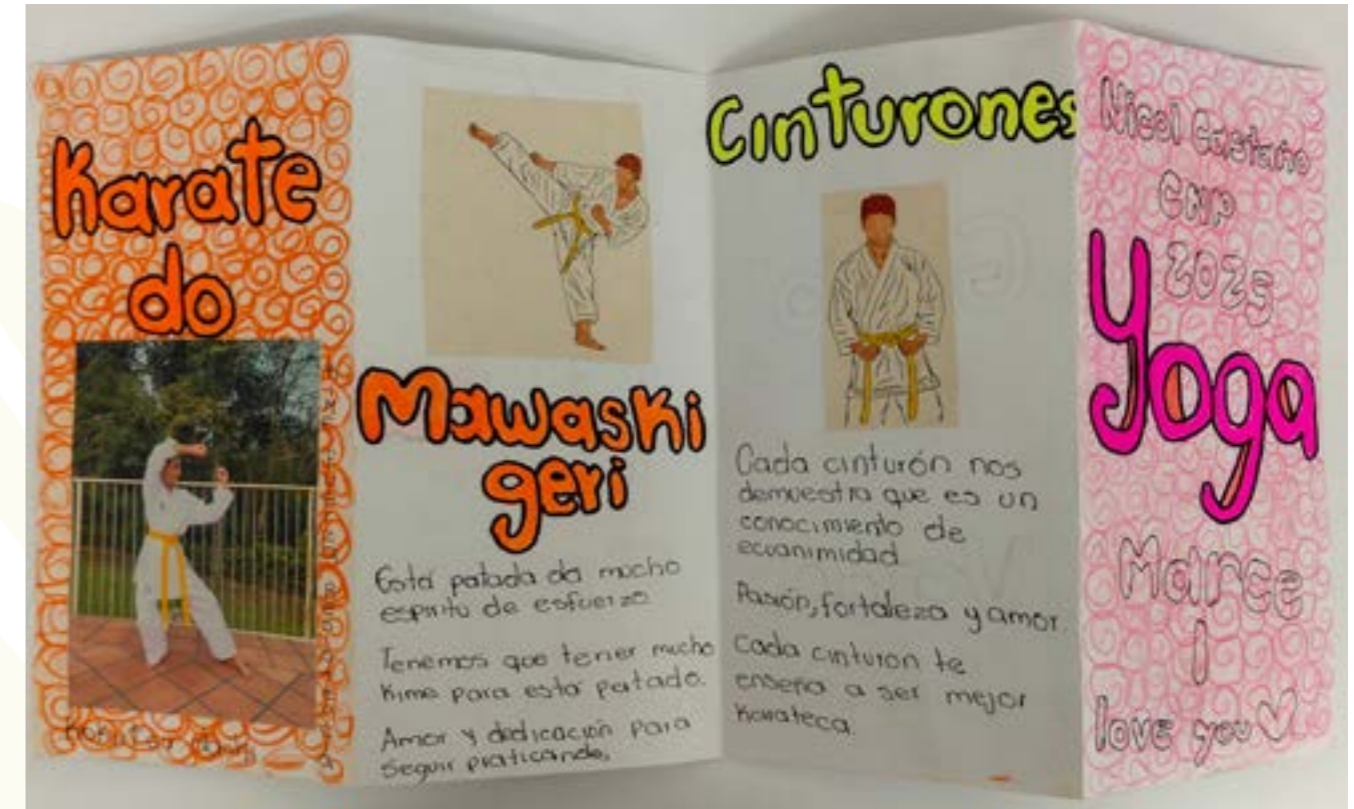 Karate
do
Mawashi
geri
Está patada da mucho
espiritu de esfuerzo
Tenemos que tener mucho
Kime para está patada.
Amor y dedicación para
seguir praticando,
Cinturones
Cada cinturón nos
demuestra que es un
conocimiento de
ecuanimidad
Pasión, fortaleza y amor.
Cada cinturon te
enseña a ser mejor
Karateca.
Nicol Castaño
CNP
2025
Yoga
Marce
I
love you